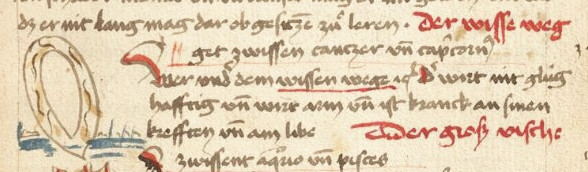 dz er nit lang mag dar ob gesitzē zů leren · Der wisse weg
get zwissen cantzer vn̄ capͥcorn̄
Wer vnd dem wissen wege ist d' wirt nit glúg
hafftig vn̄ wirt arm vn̄ ist kranck an sinen
krefften vn̄ am libe Der groß vische
zwissent aq̄rio vn̄ pisces